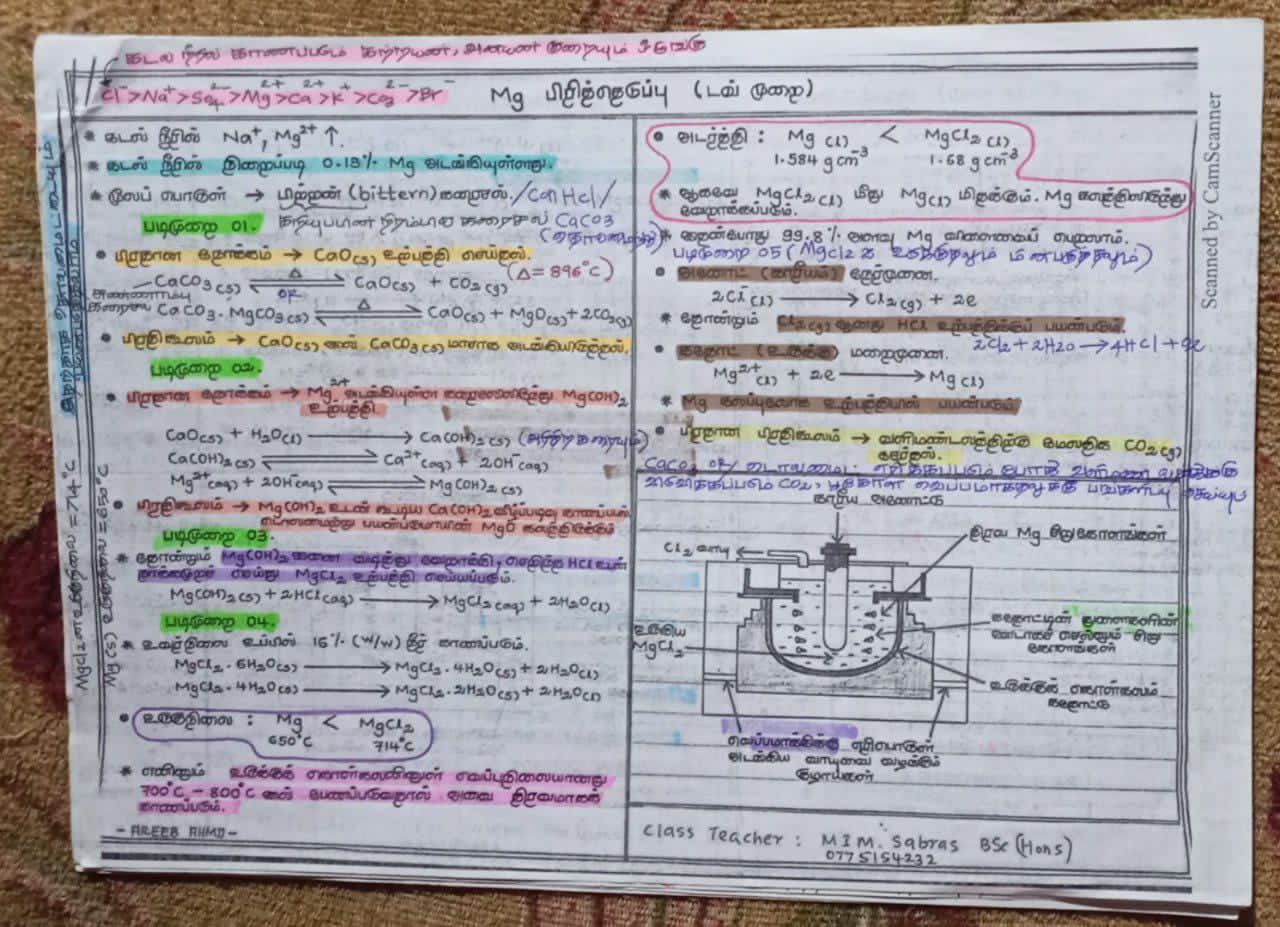 கடல் நீரில் காணப்படும் கற்றயன், அனயன் குறையும் ஒழுங்கு
Cl⁻>Na⁺>SO₄²⁻>Mg²⁺>Ca²⁺>K⁺>CO₃²⁻>Br⁻
Mg பிரித்தெடுப்பு (டவ் முறை)
* கடல் நீரில் Na⁺, Mg²⁺ ↑.
* கடல் நீரில் நிறைப்படி 0.13% Mg அடங்கியுள்ளது.
* மூலப் பொருள் → பிற்றன் (bittern) கரைசல். /Con HCl/
படிமுறை 01. கறியுப்பின் நிரம்பல் கரைசல் CaCO₃
* பிரதான நோக்கம் → CaO(s) உற்பத்தி செய்தல்.
(Δ = 896°C)
CaCO₃(s) ⇌ Δ CaO(s) + CO₂(g)
or
CaCO₃.MgCO₃(s) ⇌ Δ CaO(s) + MgO(s) + 2CO₂(g)
* பிரதிகூலம் → CaO(s) இல் CaCO₃(s) மாசாக அடங்கியிருத்தல்.
படிமுறை 02.
* பிரதான நோக்கம் → Mg²⁺ அடங்கியுள்ள கரைசலிலிருந்து Mg(OH)₂
உற்பத்தி
CaO(s) + H₂O(l) → Ca(OH)₂(s)
Ca(OH)₂(s) ⇌ Ca²⁺(aq) + 2OH⁻(aq)
Mg²⁺(aq) + 2OH⁻(aq) ⇌ Mg(OH)₂(s)
* பிரதிகூலம் → Mg(OH)₂ உடன் கூடிய Ca(OH)₂ வீழ்படிவு காணப்படல்
படிமுறை 03.
* தோன்றும் Mg(OH)₂ இனை வடித்து வேறாக்கி, செறிந்த HCl உடன்
தாக்கமுறச் செய்து MgCl₂ உற்பத்தி செய்யப்படும்.
Mg(OH)₂(s) + 2HCl(aq) → MgCl₂(aq) + 2H₂O(l)
படிமுறை 04.
* உலர்நிலை உப்பில் 16% (w/w) நீர் காணப்படும்.
MgCl₂.6H₂O(s) → MgCl₂.4H₂O(s) + 2H₂O(l)
MgCl₂.4H₂O(s) → MgCl₂.2H₂O(s) + 2H₂O(l)
* உருகுநிலை : Mg < MgCl₂
650°C 714°C
* எனினும் உருக்குக் கொள்கலனினுள் வெப்பநிலையானது
700°C – 800°C இல் பேணப்படுவதால் அவை திரவமாகக்
காணப்படும்.
- AREEB AHMD -
MgCl₂ன் உருகுநிலை = 714°C
Mg(s) உருகுநிலை = 650°C
* அடர்த்தி : Mg(l) < MgCl₂(l)
1.584 g cm⁻³ 1.68 g cm⁻³
* ஆகவே MgCl₂(l) மீது Mg(l) மிதக்கும். Mg காற்றிலிருந்து
வேறாக்கப்படும்.
* இதன்போது 99.8% அளவு Mg விளைவைப் பெறலாம்.
படிமுறை 05 (MgCl₂ ஐ உருக்குதலும் மின்பகுத்தலும்)
* அனோட் (காரீயம்) நேர்முனை.
2Cl⁻(l) → Cl₂(g) + 2e
* தோன்றும் Cl₂(g) ஆனது HCl உற்பத்திக்குப் பயன்படும்.
2Cl₂ + 2H₂O → 4HCl + O₂
* கதோட் (உருக்கு) மறைமுனை.
Mg²⁺(l) + 2e → Mg(l)
* Mg கலப்புலோக உற்பத்தியில் பயன்படும்
* பிரதான பிரதிகூலம் → வளிமண்டலத்திற்கு மேலதிக CO₂(g)
சேர்தல்.
காரீய அனோட்டு
Cl₂ வாயு
திரவ Mg சிறுகோளங்கள்
உருகிய
MgCl₂
கதோட்டின் துளைகளின்
ஊடாகச் செல்லும் சிறு
கோளங்கள்
உருக்குக் கொள்கலம்
கதோட்டு
வெப்பமாக்கிக்கு எரிபொருள்
அடங்கிய வாயுவை வழங்கும்
குழாய்கள்
Class Teacher : M I M. Sabras BSc (Hons)
0775154232
Scanned by CamScanner